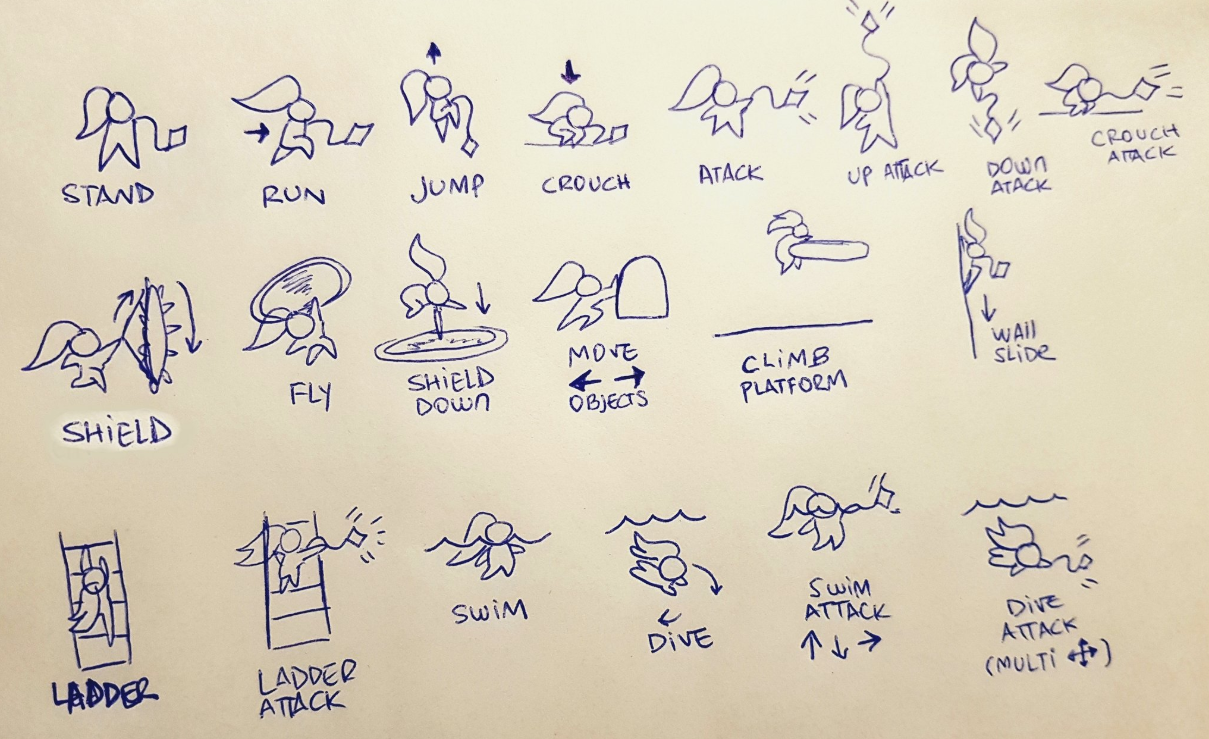 STAND
RUN
JUMP
CROUCH
ATACK
UP ATTACK
DOWN
ATACK
CROUCH
ATTACK
SHiELD
FLY
SHiELD
DOWN
MOVE
OBJECTS
CLiMB
PLATFORM
WAll
SLiDE
LADDER
LADDER
ATTACK
SWiM
DiVE
SWiM
ATTACK
DiVE
ATTACK
(MULTi)